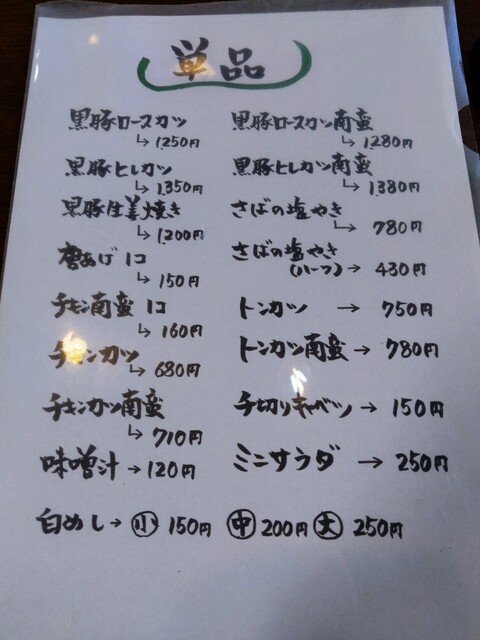 単品
黒豚ロースカツ
↳ 1250円
黒豚ヒレカツ
↳ 1,350円
黒豚生姜焼き
↳ 1,200円
唐あげ 1コ
↳ 150円
チキン南蛮 1コ
↳ 160円
チキンカツ
↳ 680円
チキンカツ南蛮
↳ 710円
味噌汁 → 120円
黒豚ロースカツ南蛮
↳ 1280円
黒豚ヒレカツ南蛮
↳ 1,380円
さばの塩やき
↳ 780円
さばの塩やき
(ハーフ) → 430円
トンカツ → 750円
トンカツ南蛮 → 780円
千切りキャベツ → 150円
ミニサラダ → 250円
白めし → 小 150円 中 200円 大 250円